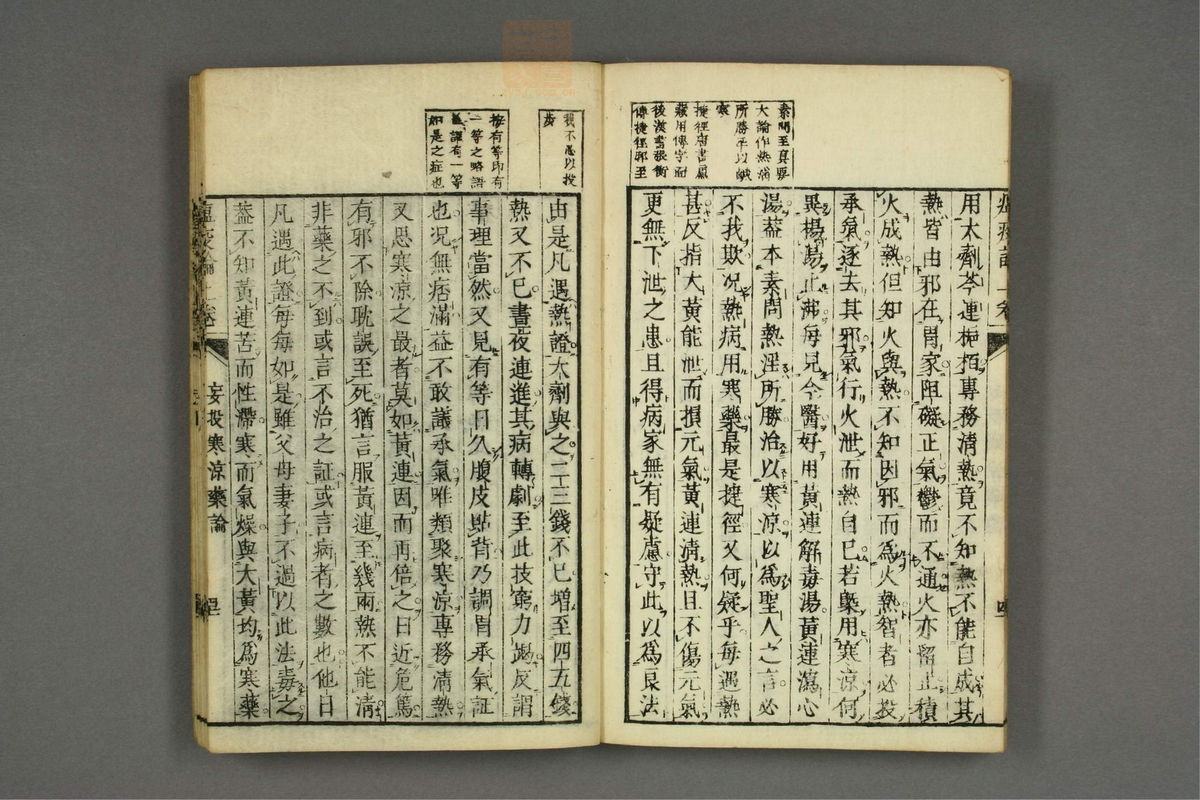 素問至真要
大論作熱淫
所勝平以鹹
寒
捷徑唐書盧
藏用傳字面
後漢書張衡
傳捷徑邪至
用大劑芩連梔栢專務清熱竟不知熱不能自成其
熱皆由邪在胃家阻礙正氣鬱而不通火亦留止積
火成熱但知火與熱不知因邪而為火熱智者必投
承氣逐去其邪氣行火泄而熱自已若槩用寒涼何
異揚湯止沸每見今醫好用黃連解毒湯黃連瀉心
湯葢本素問熱淫所勝治以寒涼以為聖人之言必
不我欺况熱病用寒藥最是捷徑又何疑乎每遇熱
甚反指大黃能泄而損元氣黃連清熱且不傷元氣
更無下泄之患且得病家無有疑慮守此以為良法
我不為以投
按有等即有
一等之略語
葢謂有一等
如是之症也
由是凡遇熱證大劑與之二三錢不已增至四五錢
熱又不已晝夜連進其病轉劇至此技窮力竭反謂
事理當然又見有等日久腹皮貼背乃調胃承氣証
也况無痞滿益不敢議承氣唯類聚寒涼專務清熱
又思寒涼之最者莫如黃連因而再倍之日近危篤
有邪不除耽誤至死猶言服黃連至幾兩熱不能清
非藥之不到或言不治之証或言病者之數也他日
凡遇此證每每如是雖父母妻子不過以此法毒之
葢不知黃連苦而性滯寒而氣燥與大黃均為寒藥
妄投寒涼藥論